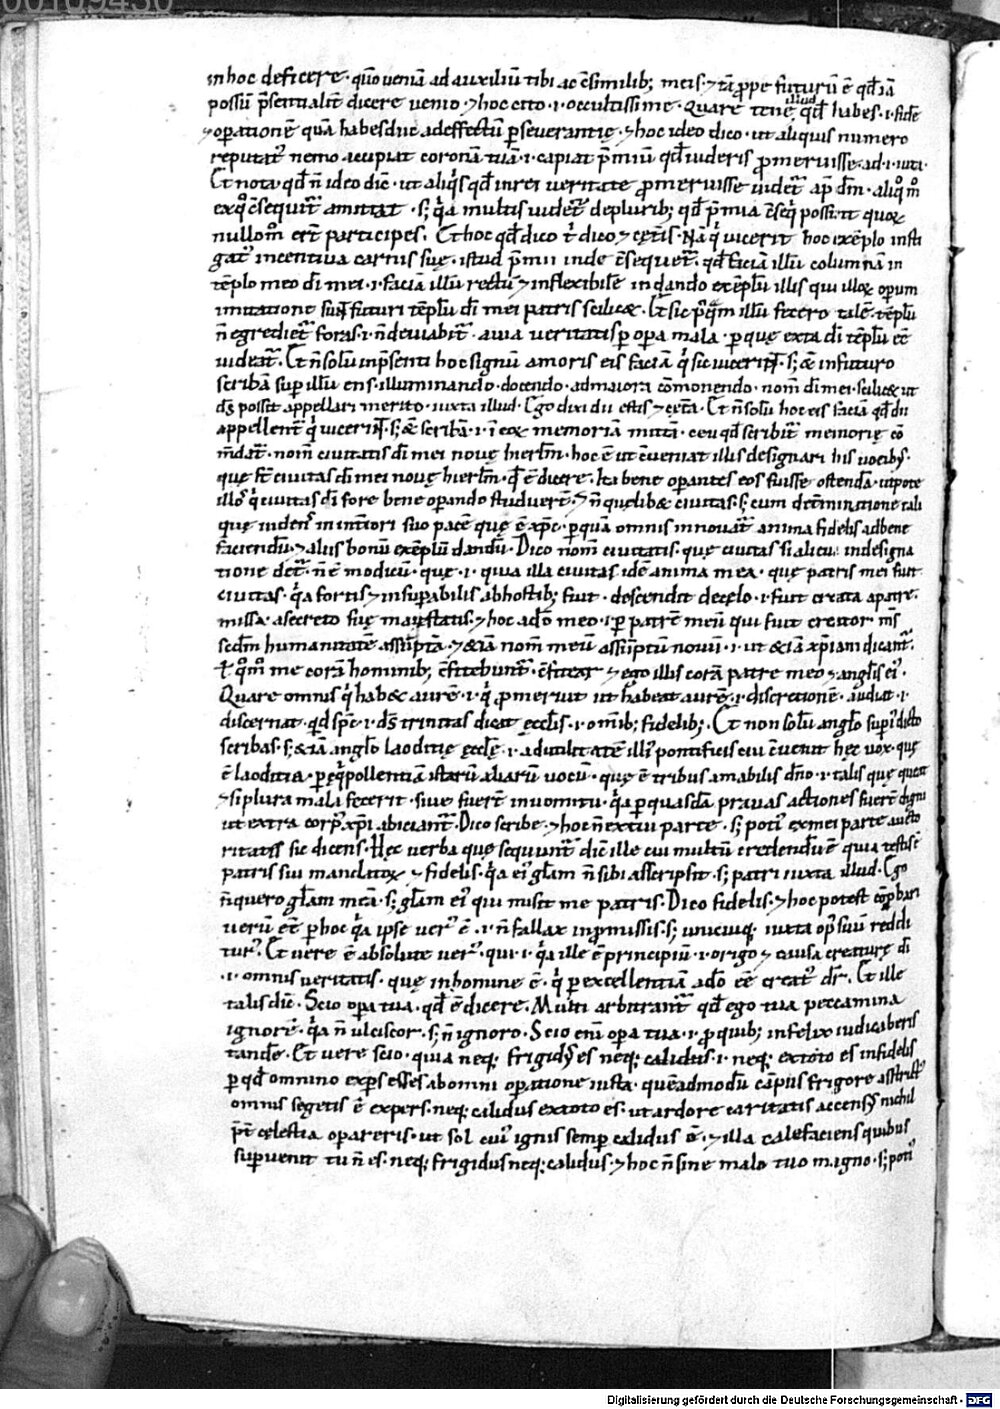 00109430
in hoc deficere · quō veniā ad auxiliū tibi ac c̄similib; meis · ⁊ tā prope futurū ē qd̄ iā
possū p̄sentialit̄ dicere venio · ⁊ hoc cito · i · occultissime · Quare tene illud qd̄ habes · i · fidē
⁊ operationē quā habes duc ad effectū perseverantię · ⁊ hoc ideo dico · ut aliquis numero
reputatꝰ nemo accipiat coronā tuā · i · capiat p̄miū qd̄ videris promeruisse
Et nota qd̄ n̄ ideo dic̄ · ut aliqͥs qd̄ in rei veritate promeruisse videt᷑ ap̄ dm̄ · aliqͦ mͦ
ex qͦ c̄sequit᷑ amittat · s; qͥa multis videt᷑ de plurib; qd̄ p̄mia c̄seqͥ possint quoꝝ
nullom̄ er̄t participes · Et hoc qd̄ dico t̄ dico ⁊ cęt̄is · Nā qͥ vicerit hoc exēplo insti
gatꝰ incentiva carnis suę · istud p̄mii inde c̄sequet᷑ · qd̄ faciā illū columnā in
tēplo meo dī mei · i · faciā illū rectū ⁊ inflexibilē in dando exēplū illis qui illoꝝ operum
imitatione sunt futuri tēplū dī mei patris scilicet · Et sic pͦqͣm illū fecero talē tēplū
n̄ egrediet᷑ foras · i · n̄ deviabit᷑ a via veritatis per opera mala · per quę extra dī tēplū eē
videat᷑ · Et n̄ solū in p̄senti hoc signū amoris eis faciā qͥ sic vicerint · s; & in futuro
scribā super illū ens · illuminando · docendo · ad maiora cōmonendo · nom̄ dī mei · scilic& ut
ds̄ possit appellari merito · iuxta illud · Ego dixi dii estis ⁊ cęt̄a · Et n̄ solū hoc eis faciā qd̄ dii
appellent᷑ qͥ vicerint · s; & scribā · i · ī eoꝝ memoriā mittā · ceu qd̄ scribit᷑ memorię cō
m̄dat᷑ · nom̄ civitatis dī mei novę hierlm̄ · hoc ē ut c̄veniat illis designari his vocibꝰ ·
quę s̄t civitas dī mei novę hierlm̄ · qd̄ ē dicere · Ita bene operantes eos fuisse ostendā · utpote
illoꝰ qͥ civitas dī fore bene operando studuer̄t · ⁊ n̄ quęlib& civitas · s; cum det̄minatione tali
quę videns in int̄iori suo pacē quę ē xp̄c · per quā omnis innovat᷑ anima fidelis ad bene
faciendū · ⁊ aliis bonū exēplū dandū · Dico nom̄ civitatis · quę civitas si alicui in designa
tione det᷑ · n̄ ē modicū · quę · i · quia illa civitas idē anima mea · quę patris mei fuit
civitas · qͥa fortis ⁊ insuperabilis ab hostib; fuit · descendit de cęlo · i · fuit creata a patre ·
missa a secreto suę maiestatis · ⁊ hoc a dō meo · i · per patrē meū qui fuit creator m̄s
scdm̄ humanitatē assūptā · ⁊ &iā nom̄ meū assūptū novū · i · ut &iā xp̄iani dicant᷑ ·
t̄ qͦm̄ me corā hominib; c̄fitebunt᷑ · c̄fitear ⁊ ego illis corā patre meo ⁊ anglis̄ eiꝰ ·
Quare omnis qͥ hab& aurē · i · qͥ promeruit ut habeat aurē · i · discretionē · audiat · i ·
discernat · quid sp̄c · i · ds̄ trinitas dicat ęcclis̄ · i · om̄ib; fidelib; · Et non solū anglō superidicto
scribas · s; &iā anglō laoditię ęcclę̄ · i · ad utilitatē illiꝰ pontificis cui c̄venit hęc vox · quę
ē laoditia · per ęqͥpollentiā istarū aliarū vocū · quę ē tribus amabilis dn̄o · i · talis quę
⁊ si plura mala fecerit · sive fuerit in vomitu · qͥa per quasdā pravas actiones fuer̄t digni
ut extra corpꝰ xp̄i abiciant᷑ · Dico scribe · ⁊ hoc n̄ ex tui parte · s; potiꝰ ex mei parte aucto
ritatis sic dicens · Hęc verba quę sequunt᷑ dic̄ ille cui multū credendū ē quia testis ē
patris sui mandatoꝝ ⁊ fidelis · qͥa eiꝰ glam̄ n̄ sibi asscripsit · s; patri iuxta illud · Ego
n̄ quero glam̄ meā · s; glam̄ eiꝰ qui misit me patris · Dico fidelis · ⁊ hoc potest cōprobari
verū eē per hoc qͥa ipse verꝰ ē · i · n̄ fallax in promissis · s; unicuiq; iuxta opꝰ suū reddi
turꝰ · Et vere ē absolute verꝰ · qui · i · qͥa ille ē principiū · i · origo ⁊ causa creaturę dī
· i · omnis veritatis · quę in homine ē · qͥ per excellentiā a dō eē creatꝰ dr̄ · Et ille
talis dic̄ · Scio opera tua · qd̄ ē dicere · Multi arbitrant᷑ qd̄ ego tua peccamina
ignorē · qͥa n̄ ulciscor · s; n̄ ignoro · Scio eni̅ opera tua · i · pro quib; infelix iudicaberis
tandē · Et vere scio · quia neq; frigidꝰ es neq; calidus · i · neq; ex toto es infidelis
per qd̄ omnino expers esses ab omni operatione iusta · quēadmodū cāpus frigore astrictꝰ
omnis segetis ē expers · neq; calidus ex toto es · ut ardore caritatis accensꝰ nichil
p̄t cęlestia operareris · ut sol cuiꝰ ignis semper calidus ē · ⁊ illa calefaciens quibus
supervenit tu n̄ es · neq; frigidus neq; calidus · ⁊ hoc n̄ sine malo tuo magno · s; potiꝰ
Digitalisierung gefördert durch die Deutsche Forschungsgemeinschaft - DFG